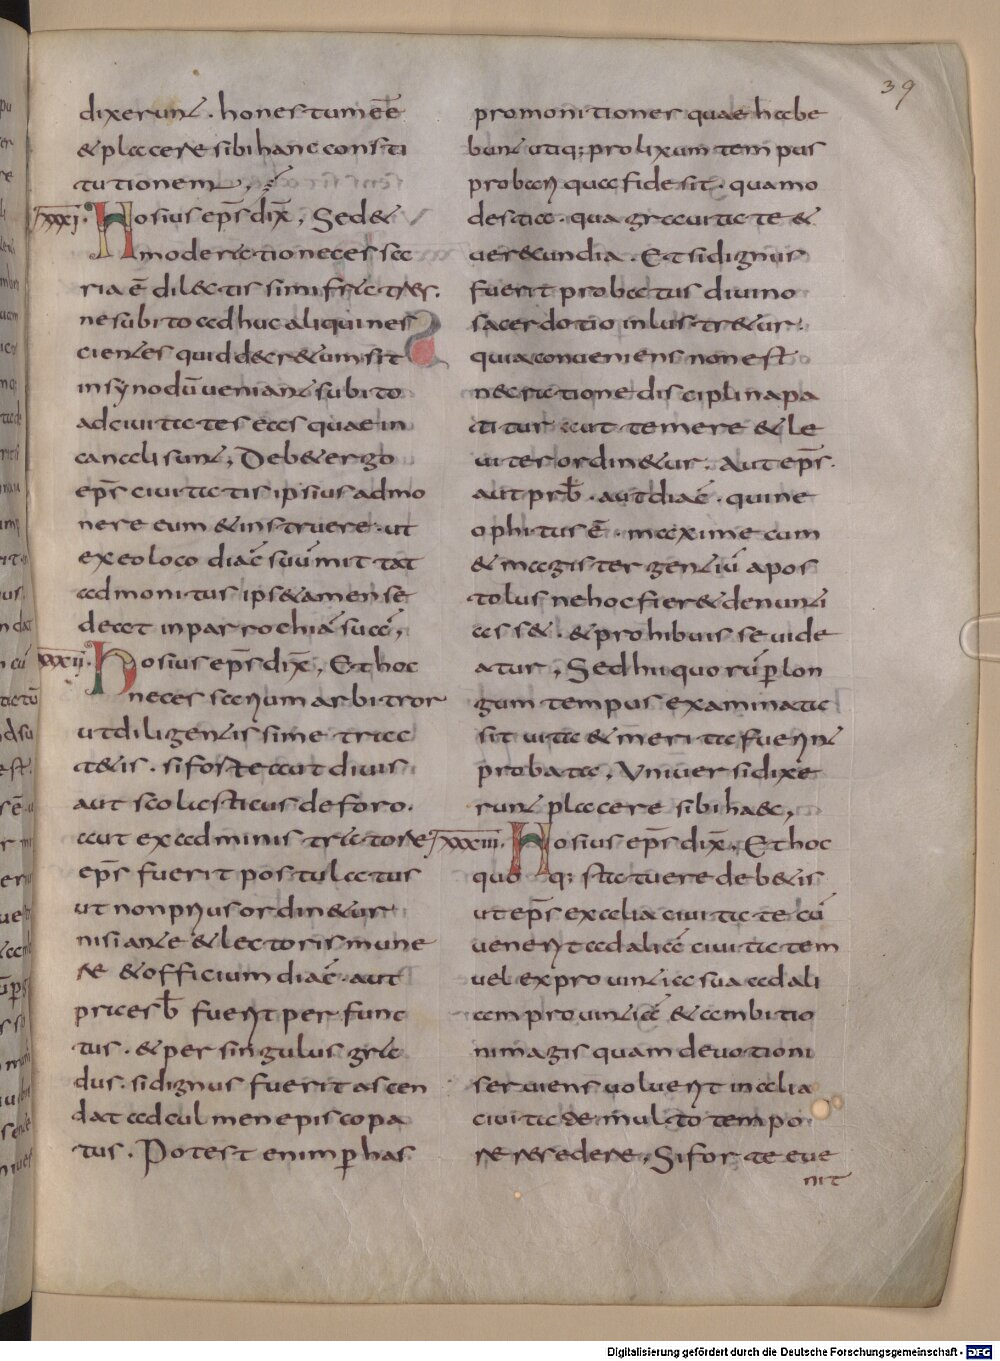 39
dixerunt. honestum eē ē
& placere sibi hanc consti
tutionem;
xxxi. Hosius ep̄s dix̄, Sed &
moderatio necessa
ria ē dilectissimi fratres.
ne subito adhuc aliqui nes
cientes quid decr&um sit
in synodū ueniant subito
ad ciuitates eas quae in
canali sunt; Deb& ergo
ep̄s ciuitatis ipsius admo
nere eum & instruere. ut
ex eo loco diac̄ suū mittat
admonitus ips& amen se
deat in parrochiā suā;
xxxii. Hosius ep̄s dix̄, Et hoc
necessarium arbitror
ut diligentissime trac
t&is. si forte aut diuis
aut scolasticus de foro.
aut ex adminis tratore
ep̄s fuerit postulatus
ut non prius ordin&ur
nisi ante & lectoris mune
re & officium diac̄. aut
praesb̄ fuerit per func
tus. & per singulus gra
dus. si dignus fuerit ascen
dat ad culmen episcopa
tus. Potest enim ꝑ has
promonitiones quae habe
bunt utiq; prolixum tempus
probari qua fide sit. quamo
destia. qua grauitate &
uer&undia. Et si dignus
fuerit probatus diuino
sacerdotio inlustr&ur.
quia conueniens non est
nec ratione disciplina pa
titur aut temere & le
uiter ordin&ur. Aut ep̄s.
aut prb̄. aut diac̄. qui ne
ophitus ē. maxime cum
& magister gentiū apos
tolus ne hoc fier& denunti
ass&. & prohibuisse uide
atur, Sed hii quorū ꝑ lon
gum tempus examinata
sit uita & merita fuerint
probata, Uniuersi dixe
runt placere sibi haec,
xxxiii. Hosius ep̄s dix̄, Et hoc
quo q; statuere deb&is
ut ep̄s ex alia ciuitate cū
uenerit ad aliā ciuitatem
uel ex prouintia sua ad ali
am prouintiā & ambitio
ni magis quam deuotioni
seruiens uoluerit in alia
ciuitate multo tempo
re resedere, Si forte eue
nit
Digitalisierung gefördert durch die Deutsche Forschungsgemeinschaft - DFG